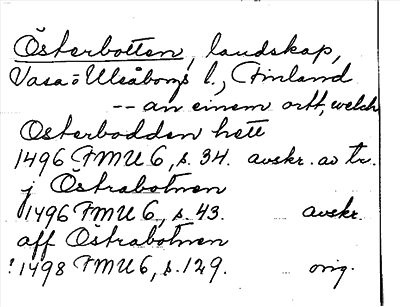 Österbotten, landskap,
Vasa o Uleåborgs l., Finland
-- an einem ortt, welch
Osterbodden hett
1496 FMU 6, s. 34. avskr. av tr.
j Östrabotnen
1496 FMU 6, s. 43. avskr.
aff Östrabotnen
1498 FMU 6, s. 129. orig.